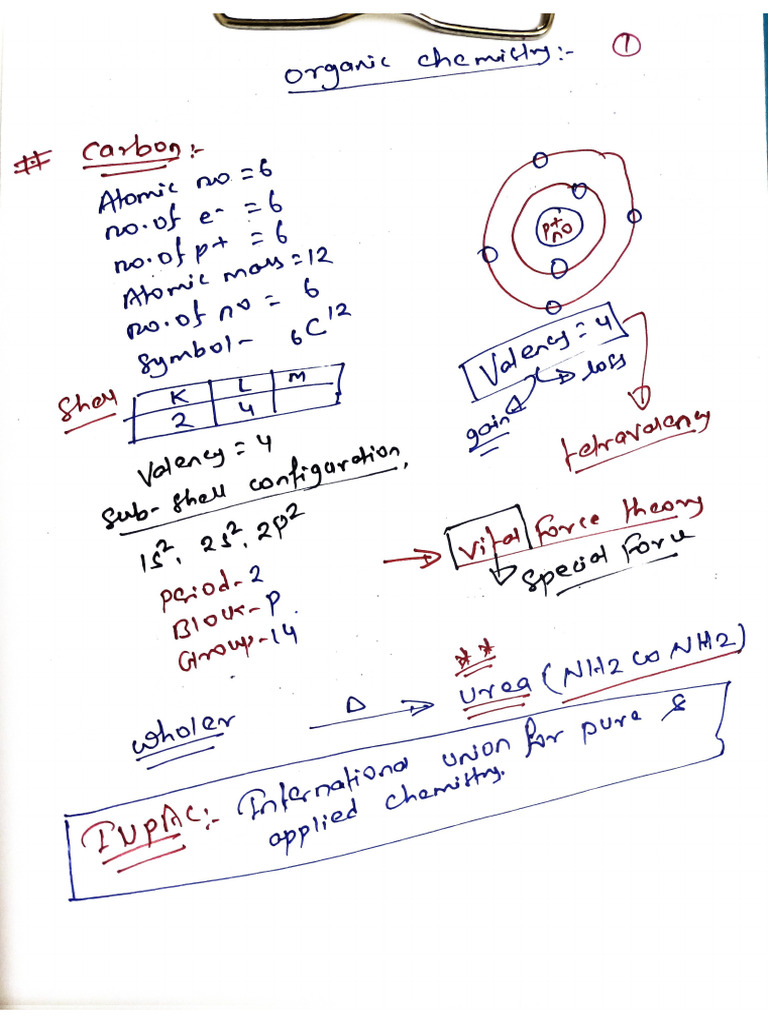 organic chemistry:- 1
# Carbon:-
Atomic no = 6
no. of e- = 6
no. of p+ = 6
Atomic mass = 12
no. of no = 6
Symbol - 6C12
p+
no
Valency = 4
gain loss
tetravalency
Shell K L M
2 4
Valency = 4
Sub-shell configuration,
1s2, 2s2, 2p2
Period - 2
Block - P.
Group - 14
→ Vital Force theory
Special Force
**
wholer Δ → urea (NH2 co NH2)
IUpAC:- International union for pure &
applied chemistry.